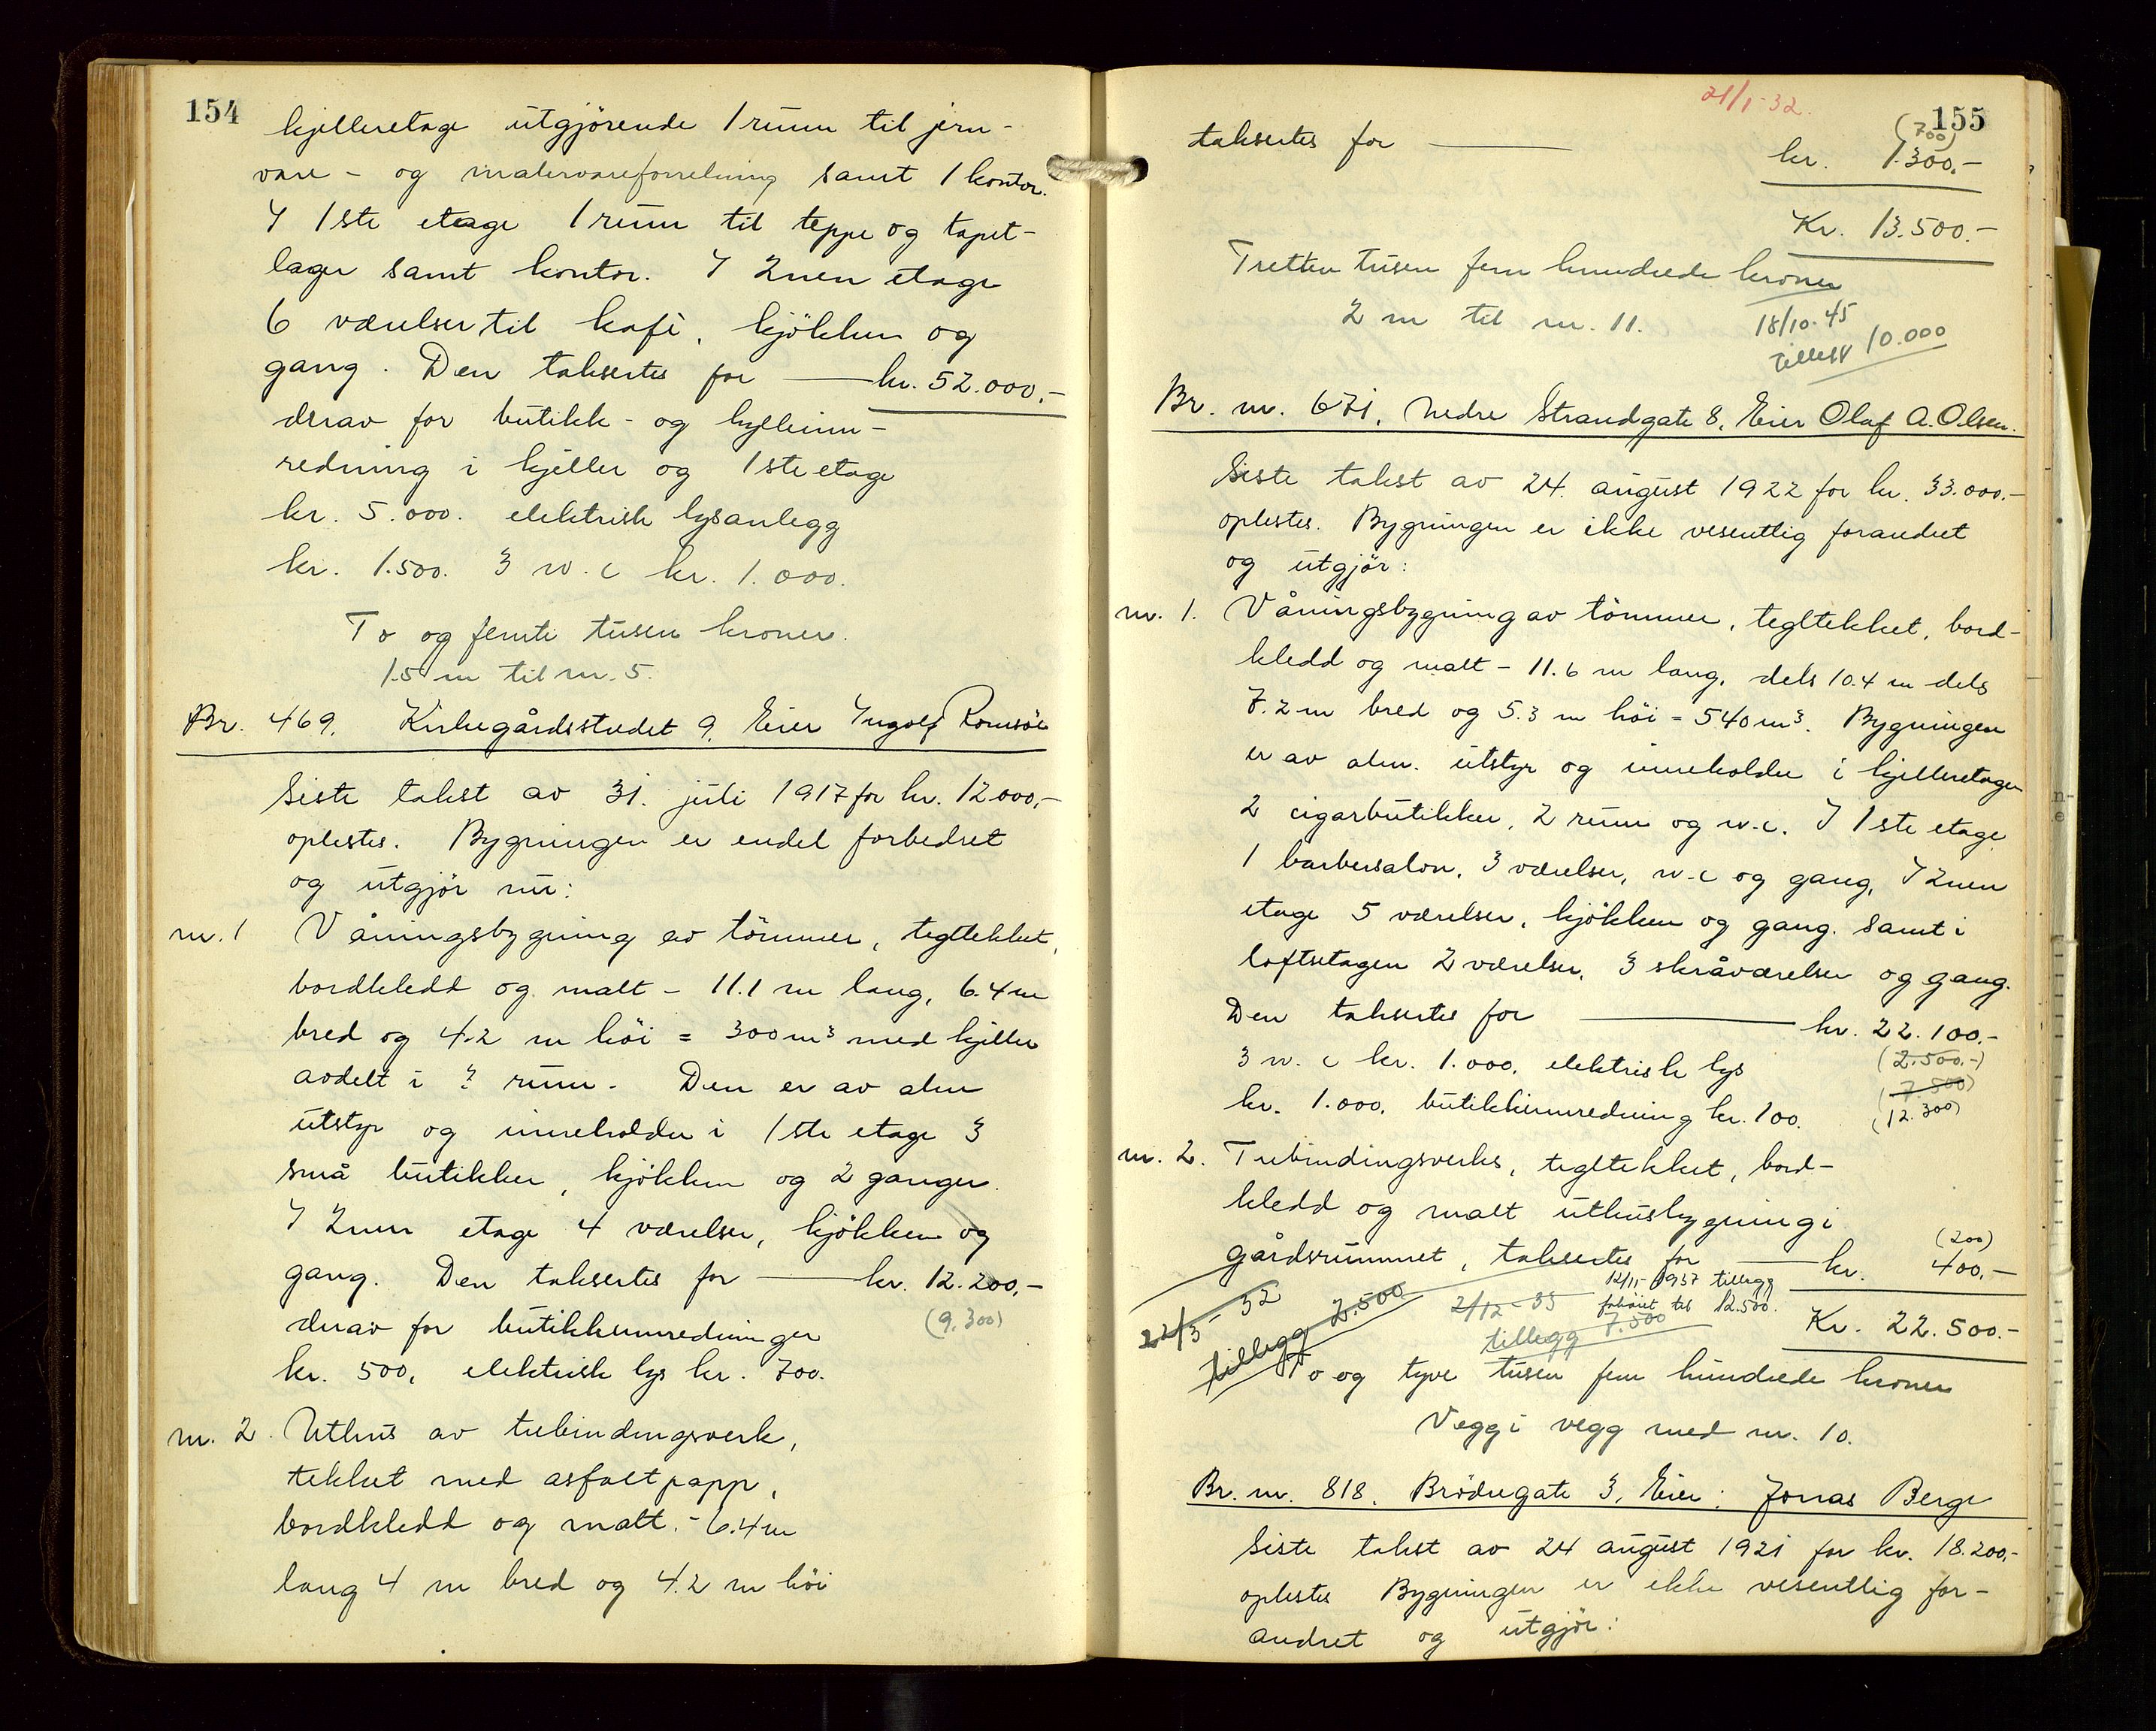 154
kjelleretage utgjörende 1 rum til jern-
vare - og malervareforretning samt 1 kontor.
I 1ste etage 1 rum til teppe og tapet-
lager samt kontor. I 2nen etage
6 værelser til kafè, kjökken og
gang. Den taksertes for — kr. 52.000.-
derav for butikk - og hylleinn-
redning i kjeller og 1ste etage
kr. 5.000. elektrisk lysanlegg
kr. 1.500. 3 w.c kr. 1.000.
To og femti tusen kroner.
15 m til nr. 5.
Br. 469. Kirkegårdsstredet 9. Eier Ingolf
Siste takst av 31. juli 1917 for kr. 12000,-
oplestes. Bygningen er endel forbedret
og utgjör nu:
nr. 1 Våningsbygning av tömmer, tegltekket,
bordkledd og malt - 11.1 m lang, 6.4 m
bred og 4.2 m höi = 300 m³ med kjeller
avdelt i rum. Den er av alm
utstyr og inneholder i 1ste etage 3
små butikker, kjökken og 2 ganger.
I 2nen etage 4 værelser, kjökken og
gang. Den taksertes for — kr. 12.200,-
derav for butikkinnredninger (9.300)
kr. 500, elektrisk lys kr. 700.
nr. 2. Uthus av trebindingsverk,
tekket med asfaltpapp,
bordkledd og malt. - 6.4 m
lang 4 m bred og 4.2 m höi
21/1-32.
155
(700)
taksertes for — kr. 1.300.-
Kr. 13.500.-
Tretten tusen fem hundrede kroner
2 m til nr. 11.
18/10.45
tillegg 10.000
Br. nr. 671. Nedre Strandgate 8. Eier Olaf A. Olsen.
Siste takst av 24. august 1922 for kr. 33.000.-
oplestes. Bygningen er ikke vesentlig forandret
og utgjör:
nr. 1. Våningsbygning av tömmer, tegltekket, bord-
kledd og malt - 11.6 m lang, dels 10.4 m dels
7.2 m bred og 5.3 m höi = 540 m³. Bygningen
er av alm. utstyr og inneholder i kjelleretagen
2 cigarbutikker, 2 rum og w.c. I 1ste etage
1 barbersalon, 3 værelser, w.c og gang, I 2nen
etage 5 værelser, kjökken og gang. samt i
loftsetagen 2 værelser, 3 skråværelser og gang.
Den taksertes for — kr. 22.100.-
3 w.c kr. 1.000. elektrisk lys (2.500.-)
(7.500)
kr. 1.000. butikkinnredning kr. 100. (12.300)
nr. 2. Trebindingsverks, tegltekket, bord-
kledd og malt uthusbygning i
gårdsrummet, taksertes for — kr. 400.-
(200)
22/3-32
tillegg 2.500
2/12-35
tillegg 7.500
12/11-1937 tillegg
forhöiet til 12.500.
Kr. 22.500.-
To og tyve tusen fem hundrede kroner
Vegg i vegg med nr. 10.
Br. nr. 818. Brödregate 3, Eier: Jonas Berge
Siste takst av 24 august 1921 for kr. 18.200,-
oplestes Bygningen er ikke vesentlig for-
andret og utgjör: